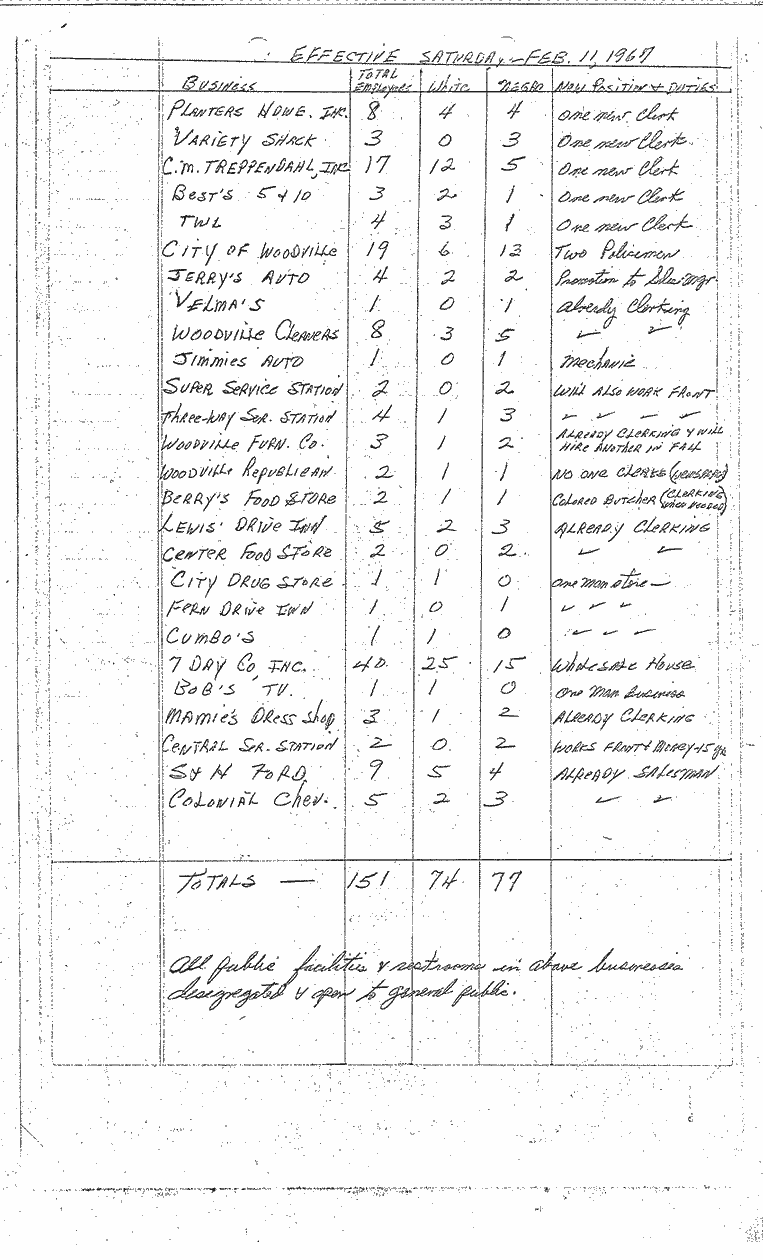 EFFECTIVE SATURDAY - FEB. 11, 1967
BUSINESS TOTAL Employees White NEGRO NEW POSITION & DUTIES
PLANTERS HDWE. INC. 8 4 4 One new Clerk
VARIETY SHACK 3 0 3 One new Clerk
C.M. TREPPENDAHL, INC 17 12 5 One new Clerk
BEST'S 5 & 10 3 2 1 One new Clerk
TWL 4 3 1 One new Clerk
CITY OF WOODVILLE 19 6 13 Two Policemen
JERRY'S AUTO 4 2 2 Promotion to Sales Mgr.
VELMA'S 1 0 1 Already Clerking
WOODVILLE CLEANERS 8 3 5 " "
JIMMIES AUTO 1 0 1 Mechanic
SUPER SERVICE STATION 2 0 2 WILL ALSO WORK FRONT
THREE-WAY SER. STATION 4 1 3 " " " "
WOODVILLE FURN. CO. 3 1 2 ALREADY CLERKING & WILL HIRE ANOTHER IN FALL
WOODVILLE REPUBLICAN 2 1 1 NO ONE CLERKS (NEWSPAPER)
BERRY'S FOOD STORE 2 1 1 COLORED BUTCHER (CLERKING WHEN NEEDED)
LEWIS' DRIVE INN 5 2 3 ALREADY CLERKING
CENTER FOOD STORE 2 0 2 " "
CITY DRUG STORE 1 1 0 One man store —
FERN DRIVE INN 1 0 1 " " "
CUMBO'S 1 1 0 " " "
7 DAY CO. INC. 40 25 15 WHOLESALE HOUSE
BOB'S TV. 1 1 0 One Man Business
MAMIE'S DRESS SHOP 3 1 2 ALREADY CLERKING
CENTRAL SER. STATION 2 0 2 WORKS FRONT & MONEY-15 yrs
S & H FORD 9 5 4 ALREADY SALESMAN
COLONIAL CHEV. 5 2 3 " "
TOTALS — 151 74 77
All public facilities & restrooms in above businesses
desegregated & open to general public.